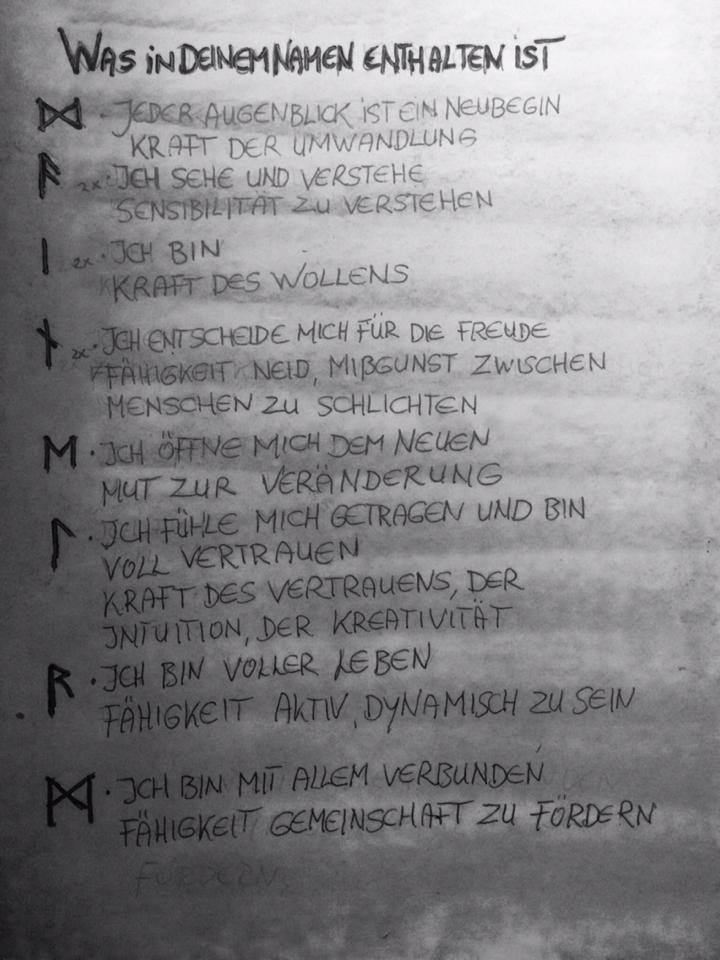 WAS IN DEINEM NAMEN ENTHALTEN IST
ᛞ · JEDER AUGENBLICK IST EIN NEUBEGIN
KRAFT DER UMWANDLUNG
ᚨ 2x · ICH SEHE UND VERSTEHE
SENSIBILITÄT ZU VERSTEHEN
ᛁ 2x · ICH BIN
KRAFT DES WOLLENS
ᚾ 2x · ICH ENTSCHEIDE MICH FÜR DIE FREUDE
FÄHIGKEIT NEID, MIßGUNST ZWISCHEN
MENSCHEN ZU SCHLICHTEN
ᛖ · ICH ÖFFNE MICH DEM NEUEN
MUT ZUR VERÄNDERUNG
ᛚ · ICH FÜHLE MICH GETRAGEN UND BIN
VOLL VERTRAUEN
KRAFT DES VERTRAUENS, DER
INTUITION, DER KREATIVITÄT
ᚱ · ICH BIN VOLLER LEBEN
FÄHIGKEIT AKTIV, DYNAMISCH ZU SEIN
ᛗ · ICH BIN MIT ALLEM VERBUNDEN
FÄHIGKEIT GEMEINSCHAFT ZU FÖRDERN
FÖRDERN